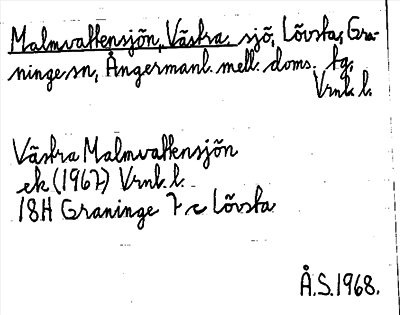 Malmvattensjön, Västra sjö, Lövsta, Gra-
ninge sn, Ångermanl. mell. doms. tg,
Vrnl. l.
Västra Malmvattensjön
ek (1967) Vrnl. l.
18H Graninge 7 c Lövsta
Å.S. 1968.